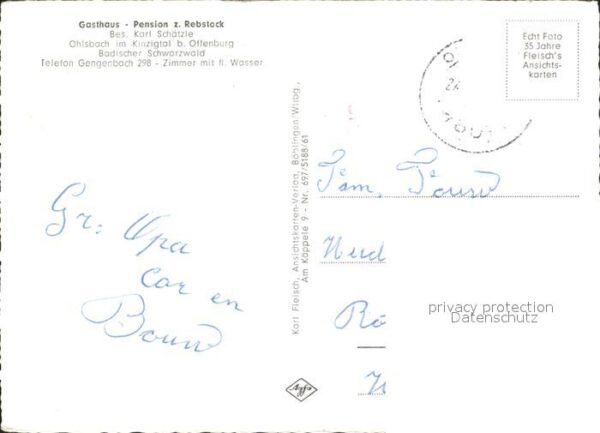 Gasthaus - Pension z. Rebstock
Bes. Karl Schätzle
Ohlsbach im Kinzigtal b. Offenburg
Badischer Schwarzwald
Telefon Gengenbach 298 - Zimmer mit fl. Wasser
Echt Foto
35 Jahre
Fleisch's
Ansichts-
karten
Karl Fleisch, Ansichtskarten-Verlag, Böhlingen/Wttbg.,
Am Käppele 9 - Nr. 697/5188/61
Gr: Opa
Cor en
Bouw
Fam.
privacy protection
Datenschutz
Agfa